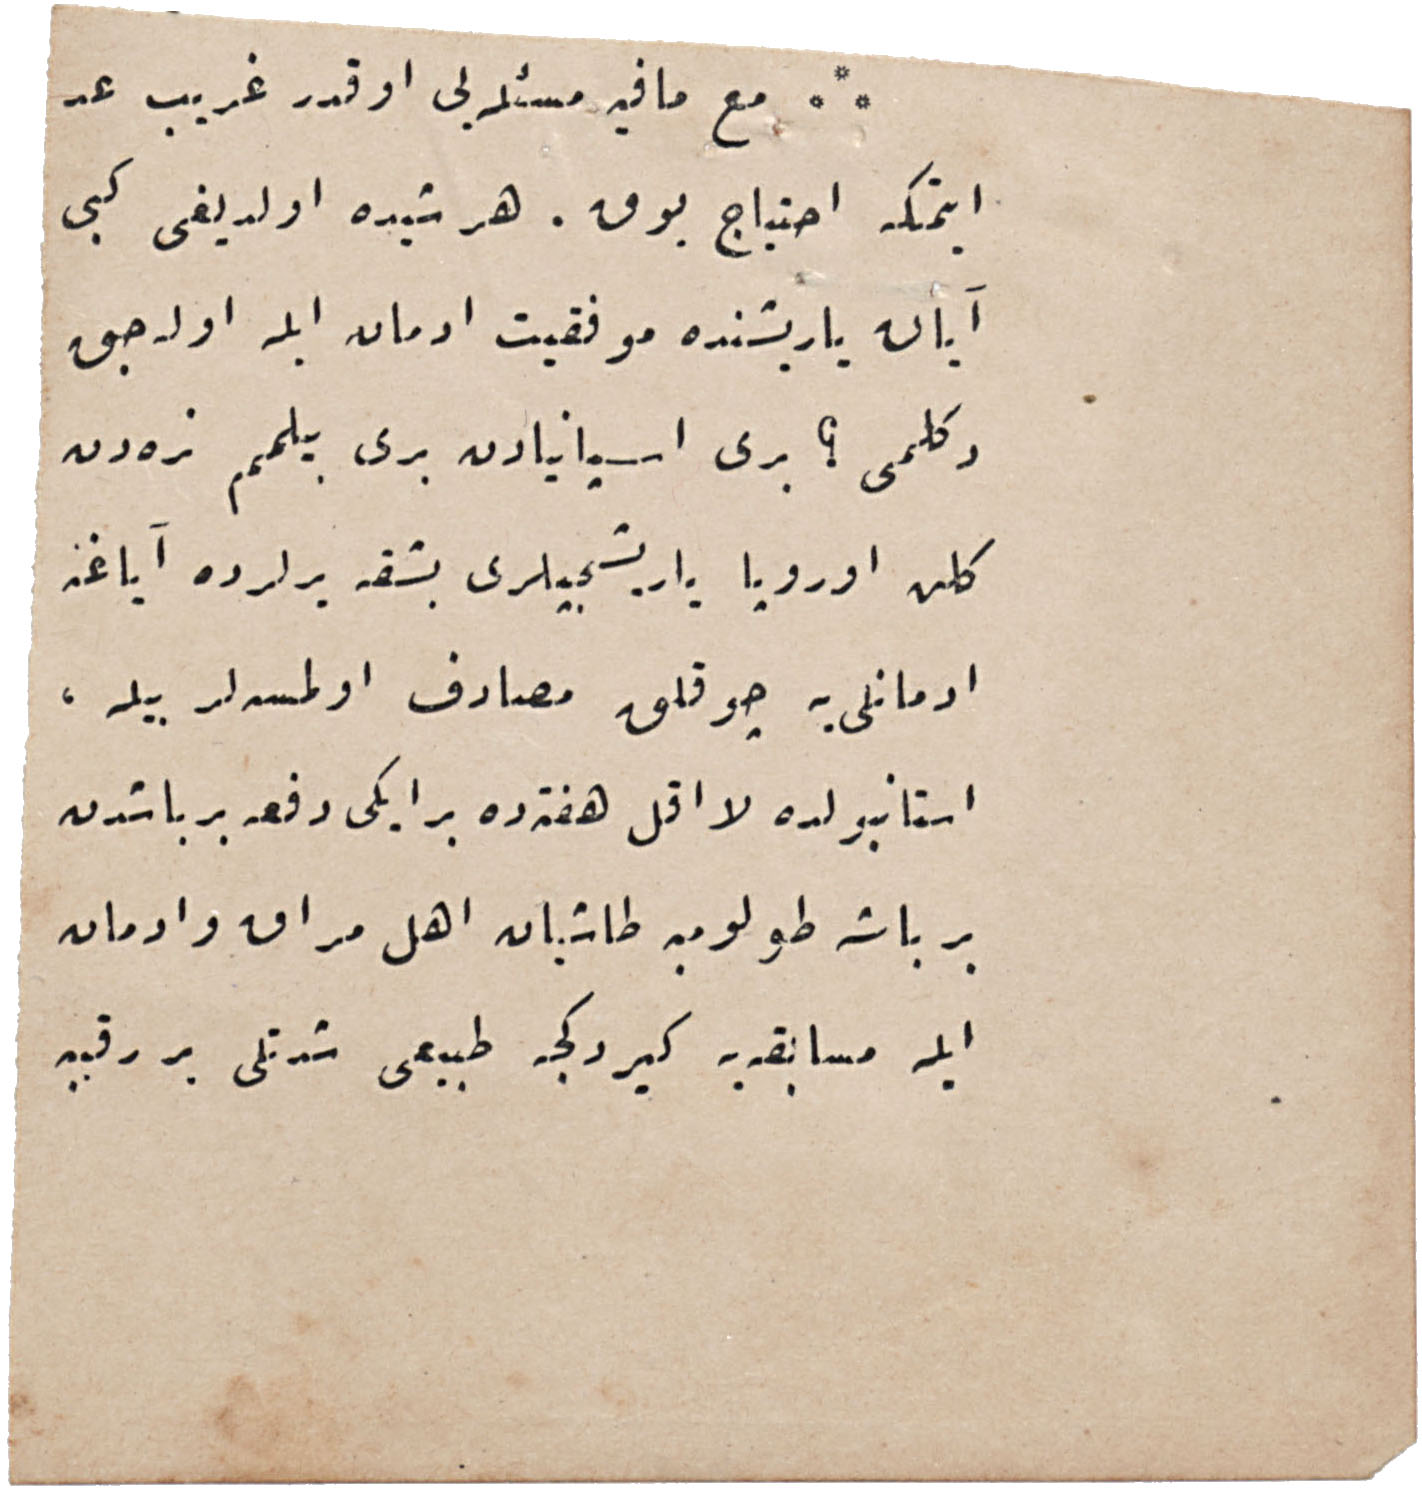 ⁂ مع مافیه مسئله‌یی اوقدر غریب عد
ایتمكه احتیاج یوق . هر شیده اولدیغی كبی
آیاق یاریشنده موفقیت ادمان ایله اوله‌جق
دكلمی ؟ بری اسپانیادن بری بیلمم نره‌دن
كلن اوروپا یاریشجیلری بشقه یرلرده آیاغنه
ادمانلی‌یه چوقلق مصادف اولمسه‌لر بیله ،
استانبولده لااقل هفته‌ده بر ایكی دفعه بر باشدن
بر باشه طولومبه طاشیان اهل مراق و ادمان
ایله مسابقه‌یه كیردكجه طبیعی شدتلی بر رقیبه